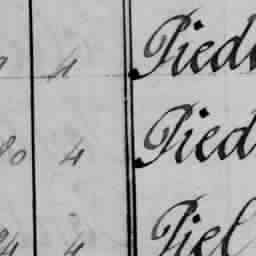 4 Pied
80 4 Pied
24 4 Piel